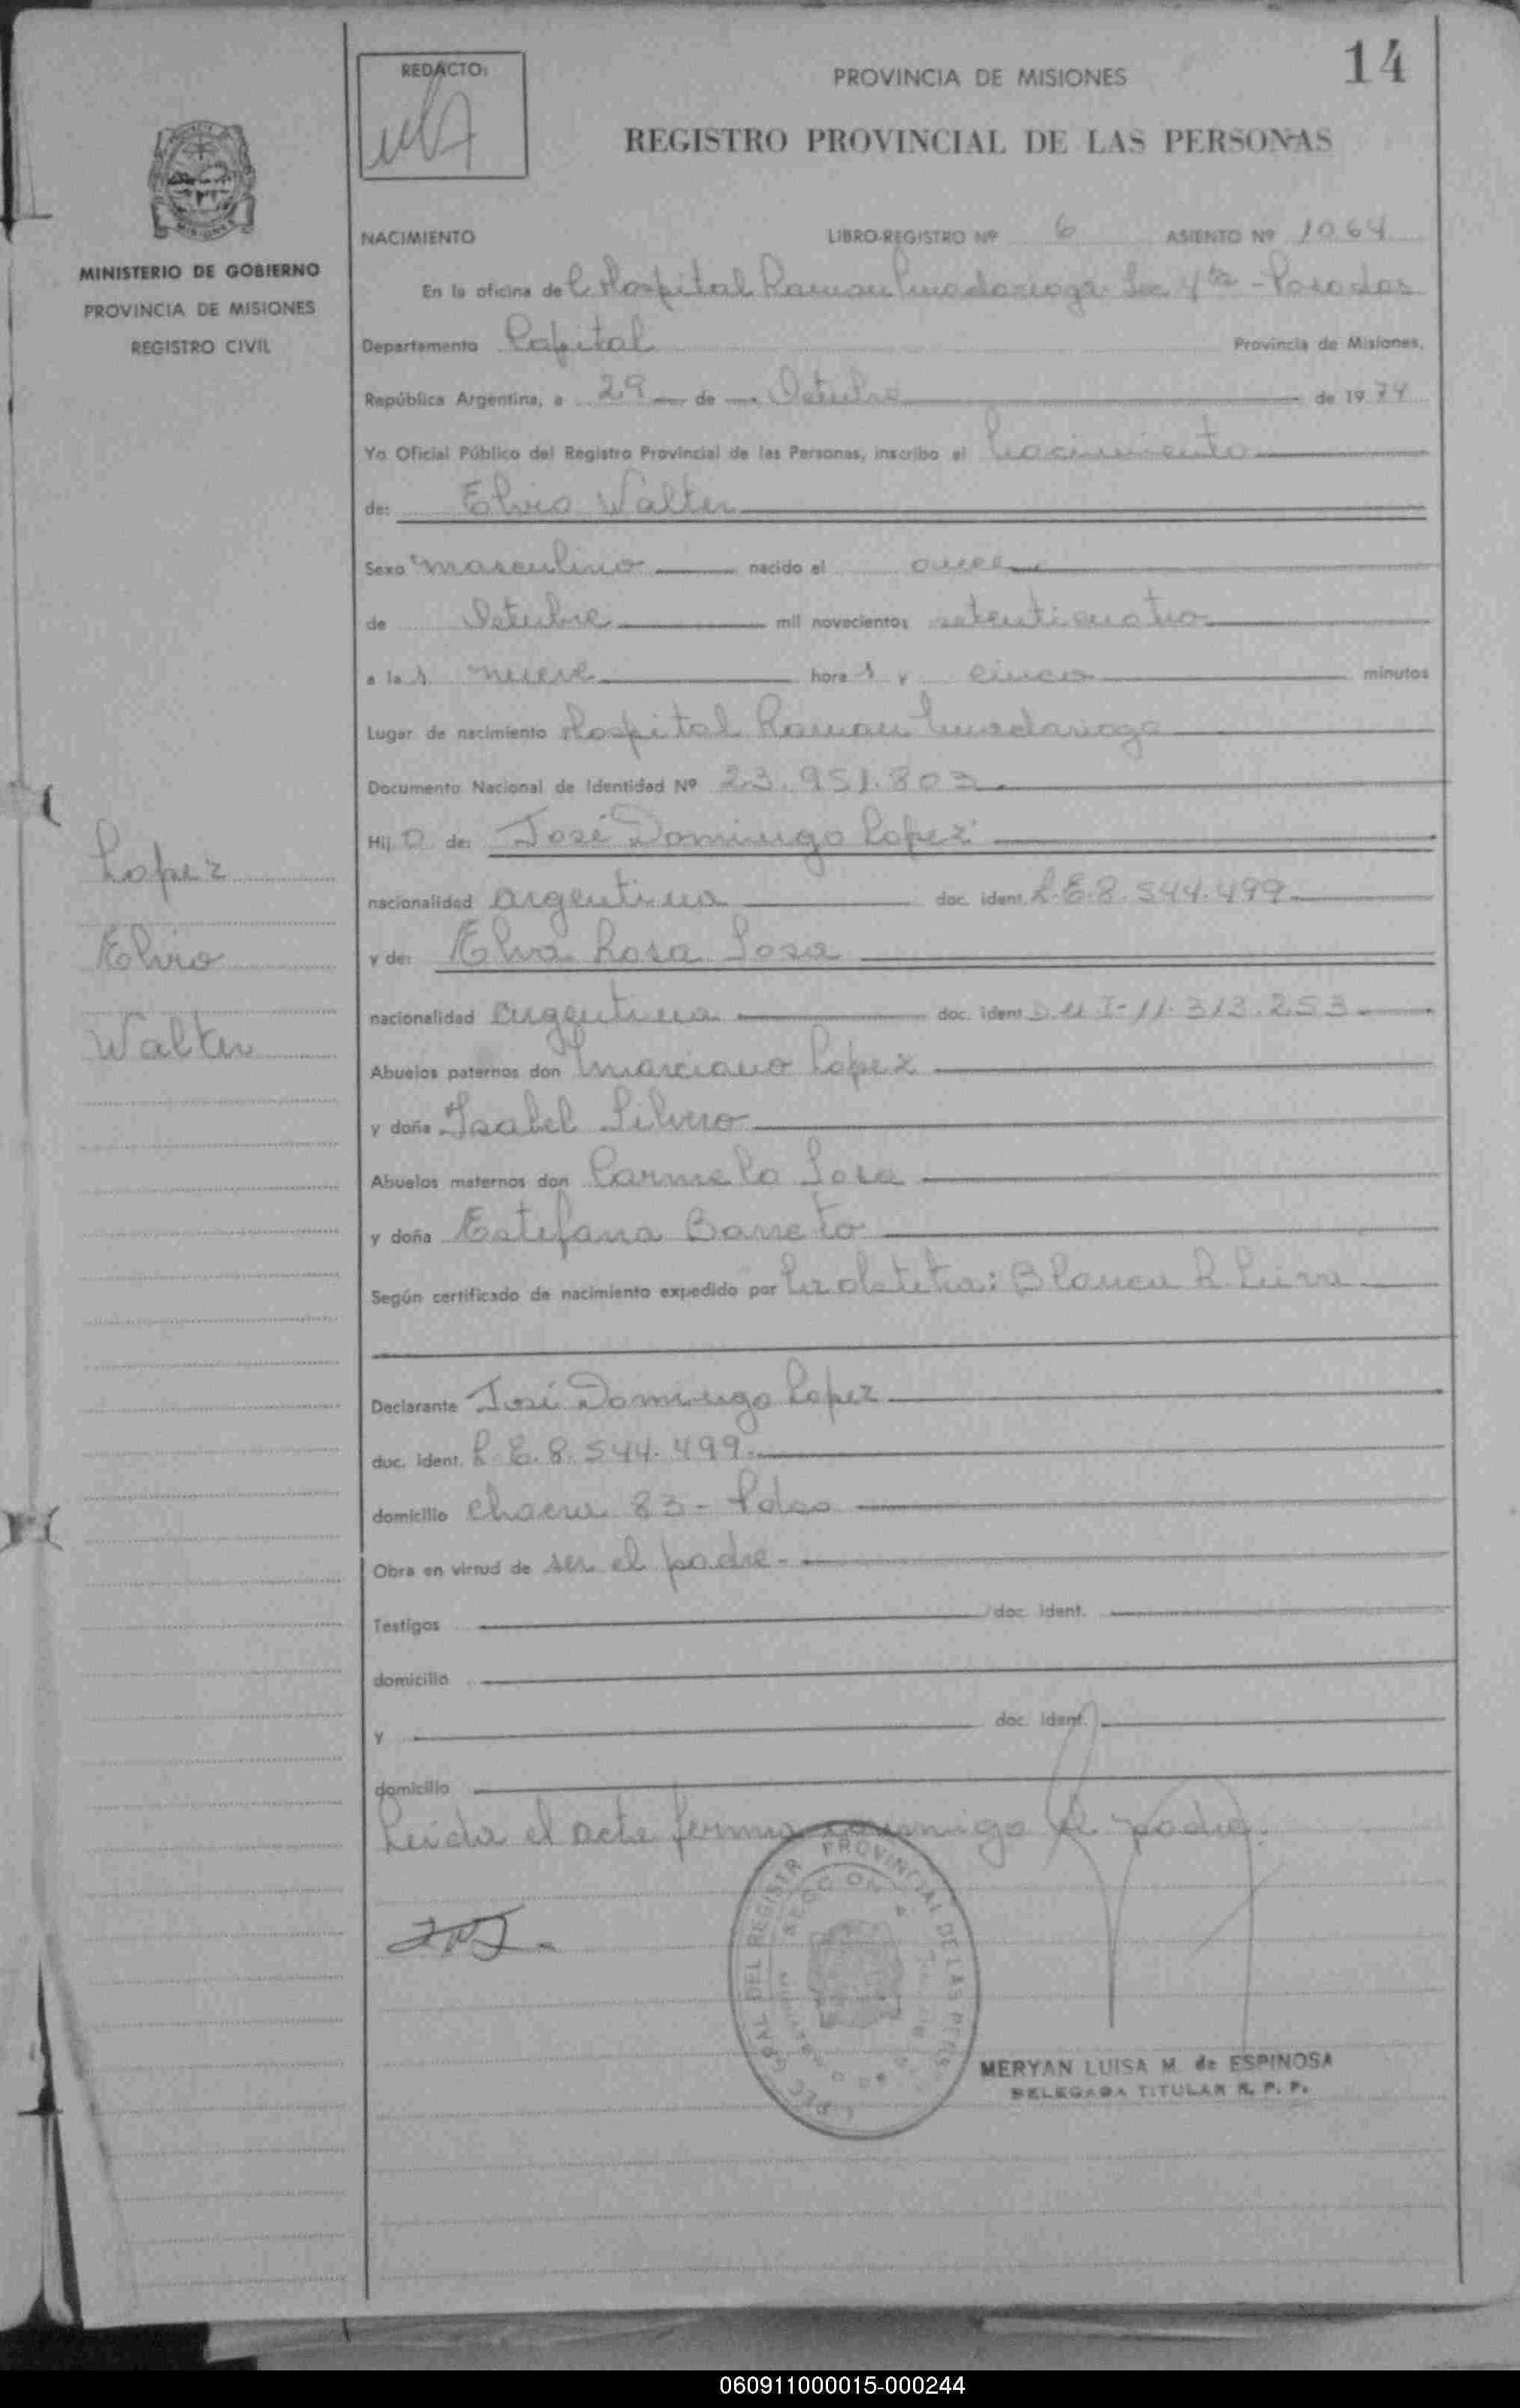 14
REDACTO:
PROVINCIA DE MISIONES
REGISTRO PROVINCIAL DE LAS PERSONAS
MINISTERIO DE GOBIERNO
PROVINCIA DE MISIONES
REGISTRO CIVIL
NACIMIENTO LIBRO-REGISTRO Nº 6 ASIENTO Nº 1064
En la oficina de Hospital Ramon Madariaga Sec 4ta - Posadas
Departamento Capital Provincia de Misiones,
República Argentina, a 29 de Octubre de 1974
Yo Oficial Público del Registro Provincial de las Personas, inscribo el Nacimiento
de: Elvio Walter
Sexo masculino nacido el once
de Octubre mil novecientos setenticuatro
a las nueve horas y cinco minutos
Lugar de nacimiento Hospital Ramon Madariaga
Documento Nacional de Identidad Nº 23.951.803
Hijo de: José Domingo Lopez
nacionalidad argentina doc. ident. L.E.8.544.499
y de: Elva Rosa Sosa
nacionalidad argentina doc. ident. D.N.I-11.313.253
Abuelos paternos don Marciano Lopez
y doña Isabel Silvero
Abuelos maternos don Carmelo Sosa
y doña Estefana Barreto
Según certificado de nacimiento expedido por la obstetra: Blanca R.
Declarante José Domingo Lopez
doc. ident. L.E.8.544.499
domicilio chacra 83 - Pdas
Obra en virtud de ser el padre -
Testigos doc. ident.
domicilio
y doc. ident.
domicilio
Leida el acta firma conmigo el padre.
Lopez
Elvio
Walter
REGISTR PROVINCIAL DE LAS PERS
MERYAN LUISA M. de ESPINOSA
DELEGADA TITULAR R. P. P.
060911000015-000244